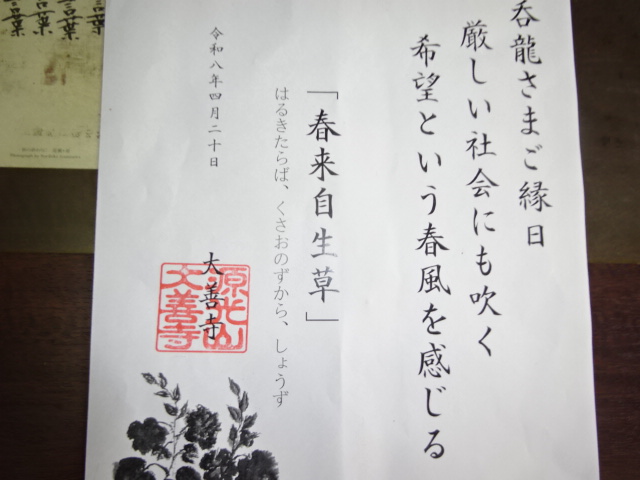 呑龍さまご縁日
厳しい社会にも吹く
希望という春風を感じる
「春来自生草」
はるきたらば、くさおのずから、しょうず
令和八年四月二十日
大善寺
源光山
大善寺